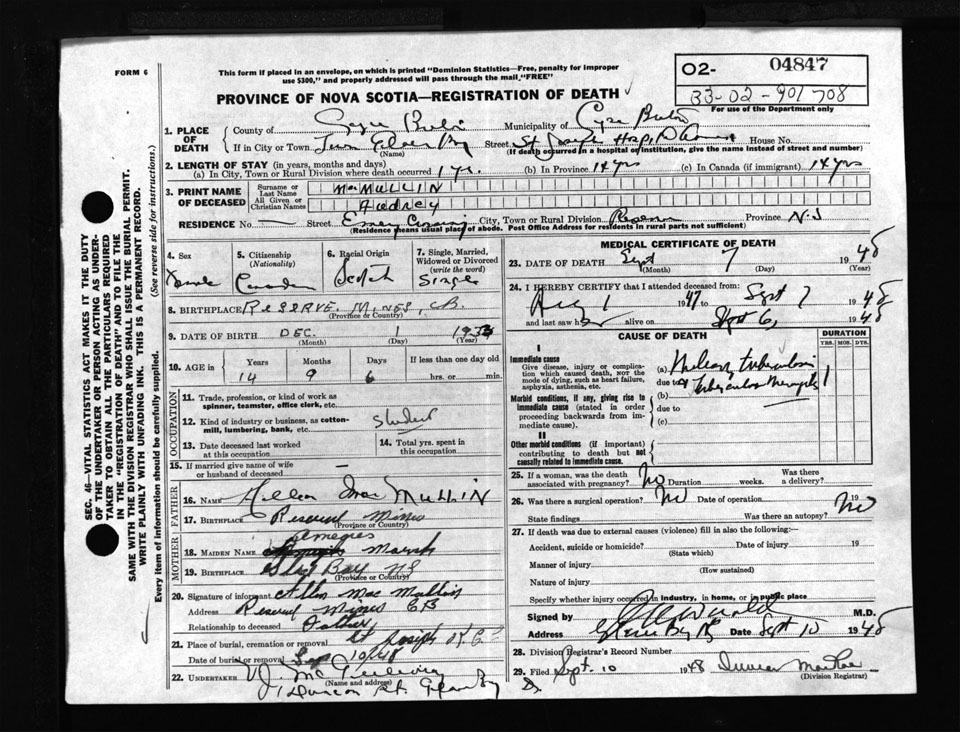 FORM 6
This form if placed in an envelope, on which is printed "Dominion Statistics—Free, penalty for improper
use $300," and properly addressed will pass through the mail "FREE"
O2- 04847
33-02-901708
For use of the Department only
PROVINCE OF NOVA SCOTIA—REGISTRATION OF DEATH
1. PLACE OF DEATH
County of Cape Breton Municipality of Cape Breton
If in City or Town Town Glace Bay Street St Joseph Hosp. House No.
(Name) (If death occurred in a hospital or institution, give the name instead of street and number)
2. LENGTH OF STAY (in years, months and days)
(a) In City, Town or Rural Division where death occurred 1 yr. (b) In Province 14 yrs (c) In Canada (if immigrant) 14 yrs
3. PRINT NAME OF DECEASED
Surname or Last Name MacMULLIN
All Given or Christian Names AUDREY
RESIDENCE No. — Street City, Town or Rural Division Reserve Province N.S
(Residence means usual place of abode. Post Office Address for residents in rural parts not sufficient)
4. Sex Female
5. Citizenship (Nationality) Canadian
6. Racial Origin Scotch
7. Single, Married, Widowed or Divorced (write the word) Single
8. BIRTHPLACE RESERVE MINES, CB.
(Province or Country)
9. DATE OF BIRTH DEC. 1 1933
(Month) (Day) (Year)
10. AGE in Years Months Days If less than one day old
14 9 6 hrs. or min.
OCCUPATION
11. Trade, profession, or kind of work as spinner, teamster, office clerk, etc.
12. Kind of industry or business, as cotton-mill, lumbering, bank, etc. Student
13. Date deceased last worked at this occupation
14. Total yrs. spent in this occupation
15. If married give name of wife or husband of deceased —
FATHER
16. NAME Mac MULLIN
17. BIRTHPLACE Reserve Mines
(Province or Country)
MOTHER
18. MAIDEN NAME Marsh
19. BIRTHPLACE Glace Bay NS
(Province or Country)
20. Signature of informant Mac Mullin
Address Reserve Mines CB
Relationship to deceased Father
21. Place of burial, cremation or removal St Joseph
Date of burial or removal Sep 10/48
22. UNDERTAKER
(Name and address)
Glace Bay
MEDICAL CERTIFICATE OF DEATH
23. DATE OF DEATH Sept 7 1948
(Month) (Day) (Year)
24. I HEREBY CERTIFY that I attended deceased from:
Aug 1 1947 to Sept 7 1948
and last saw her alive on Sept 6, 1948
CAUSE OF DEATH
DURATION
YRS. MOS. DYS.
I
Immediate cause
Give disease, injury or complication which caused death, not the mode of dying, such as heart failure, asphyxia, asthenia, etc.
(a) Miliary tuberculosis
due to Tuberculous Meningitis
Morbid conditions, if any, giving rise to immediate cause (stated in order proceeding backwards from immediate cause).
(b)
due to
(c)
II
Other morbid conditions (if important) contributing to death but not causally related to immediate cause.
25. If a woman, was the death associated with pregnancy? No Duration weeks. Was there a delivery?
26. Was there a surgical operation? No Date of operation 19
State findings Was there an autopsy? No
27. If death was due to external causes (violence) fill in also the following:—
Accident, suicide or homicide? Date of injury 19
(State which)
Manner of injury
(How sustained)
Nature of injury
Specify whether injury occurred in industry, in home, or in public place
Signed by M.D.
Address Glace Bay NS Date Sept 10 1948
28. Division Registrar's Record Number
29. Filed Sept. 10 1948 Duncan MacRae
(Division Registrar)
SEC. 46—VITAL STATISTICS ACT MAKES IT THE DUTY
OF THE UNDERTAKER OR PERSON ACTING AS UNDER-
TAKER TO OBTAIN ALL THE PARTICULARS REQUIRED
IN THE "REGISTRATION OF DEATH" AND TO FILE THE
SAME WITH THE DIVISION REGISTRAR WHO SHALL ISSUE THE BURIAL PERMIT.
WRITE PLAINLY WITH UNFADING INK. THIS IS A PERMANENT RECORD.
Every item of information should be carefully supplied. (See reverse side for instructions.)